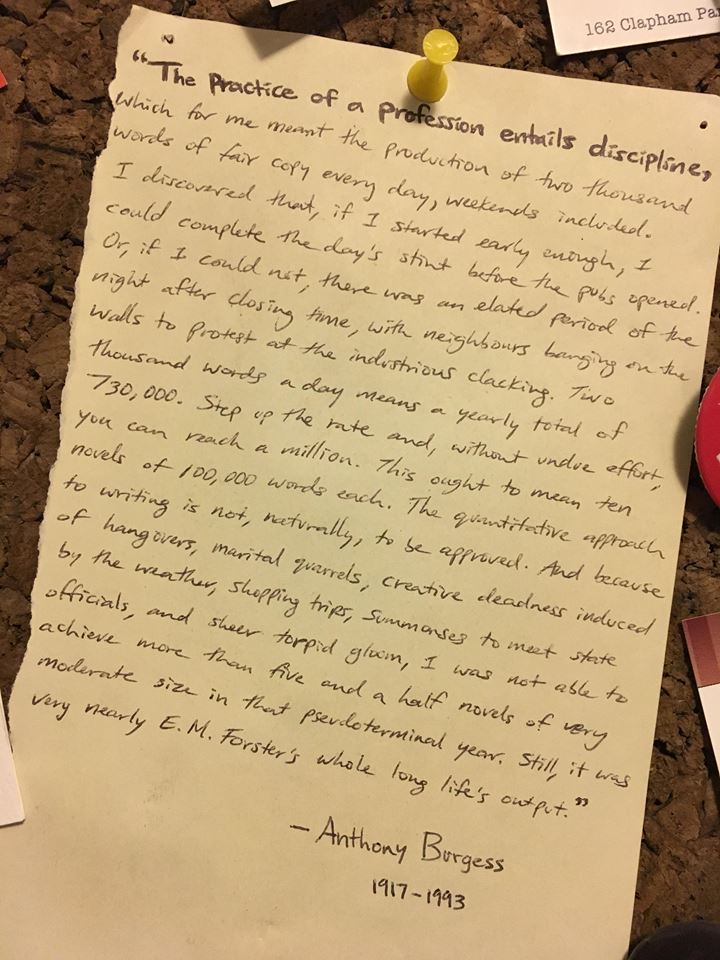 162 Clapham Pa
"The Practice of a profession entails discipline,
which for me meant the production of two thousand
words of fair copy every day, weekends included.
I discovered that, if I started early enough, I
could complete the day's stint before the pubs opened.
Or, if I could not, there was an elated period of the
night after closing time, with neighbours banging on the
walls to protest at the industrious clacking. Two
thousand words a day means a yearly total of
730,000. Step up the rate and, without undue effort,
you can reach a million. This ought to mean ten
novels of 100,000 words each. The quantitative approach
to writing is not, naturally, to be approved. And because
of hangovers, marital quarrels, creative deadness induced
by the weather, shopping trips, summonses to meet state
officials, and sheer torpid gloom, I was not able to
achieve more than five and a half novels of very
moderate size in that pseudoterminal year. Still, it was
very nearly E.M. Forster's whole long life's output."
- Anthony Burgess
1917-1993